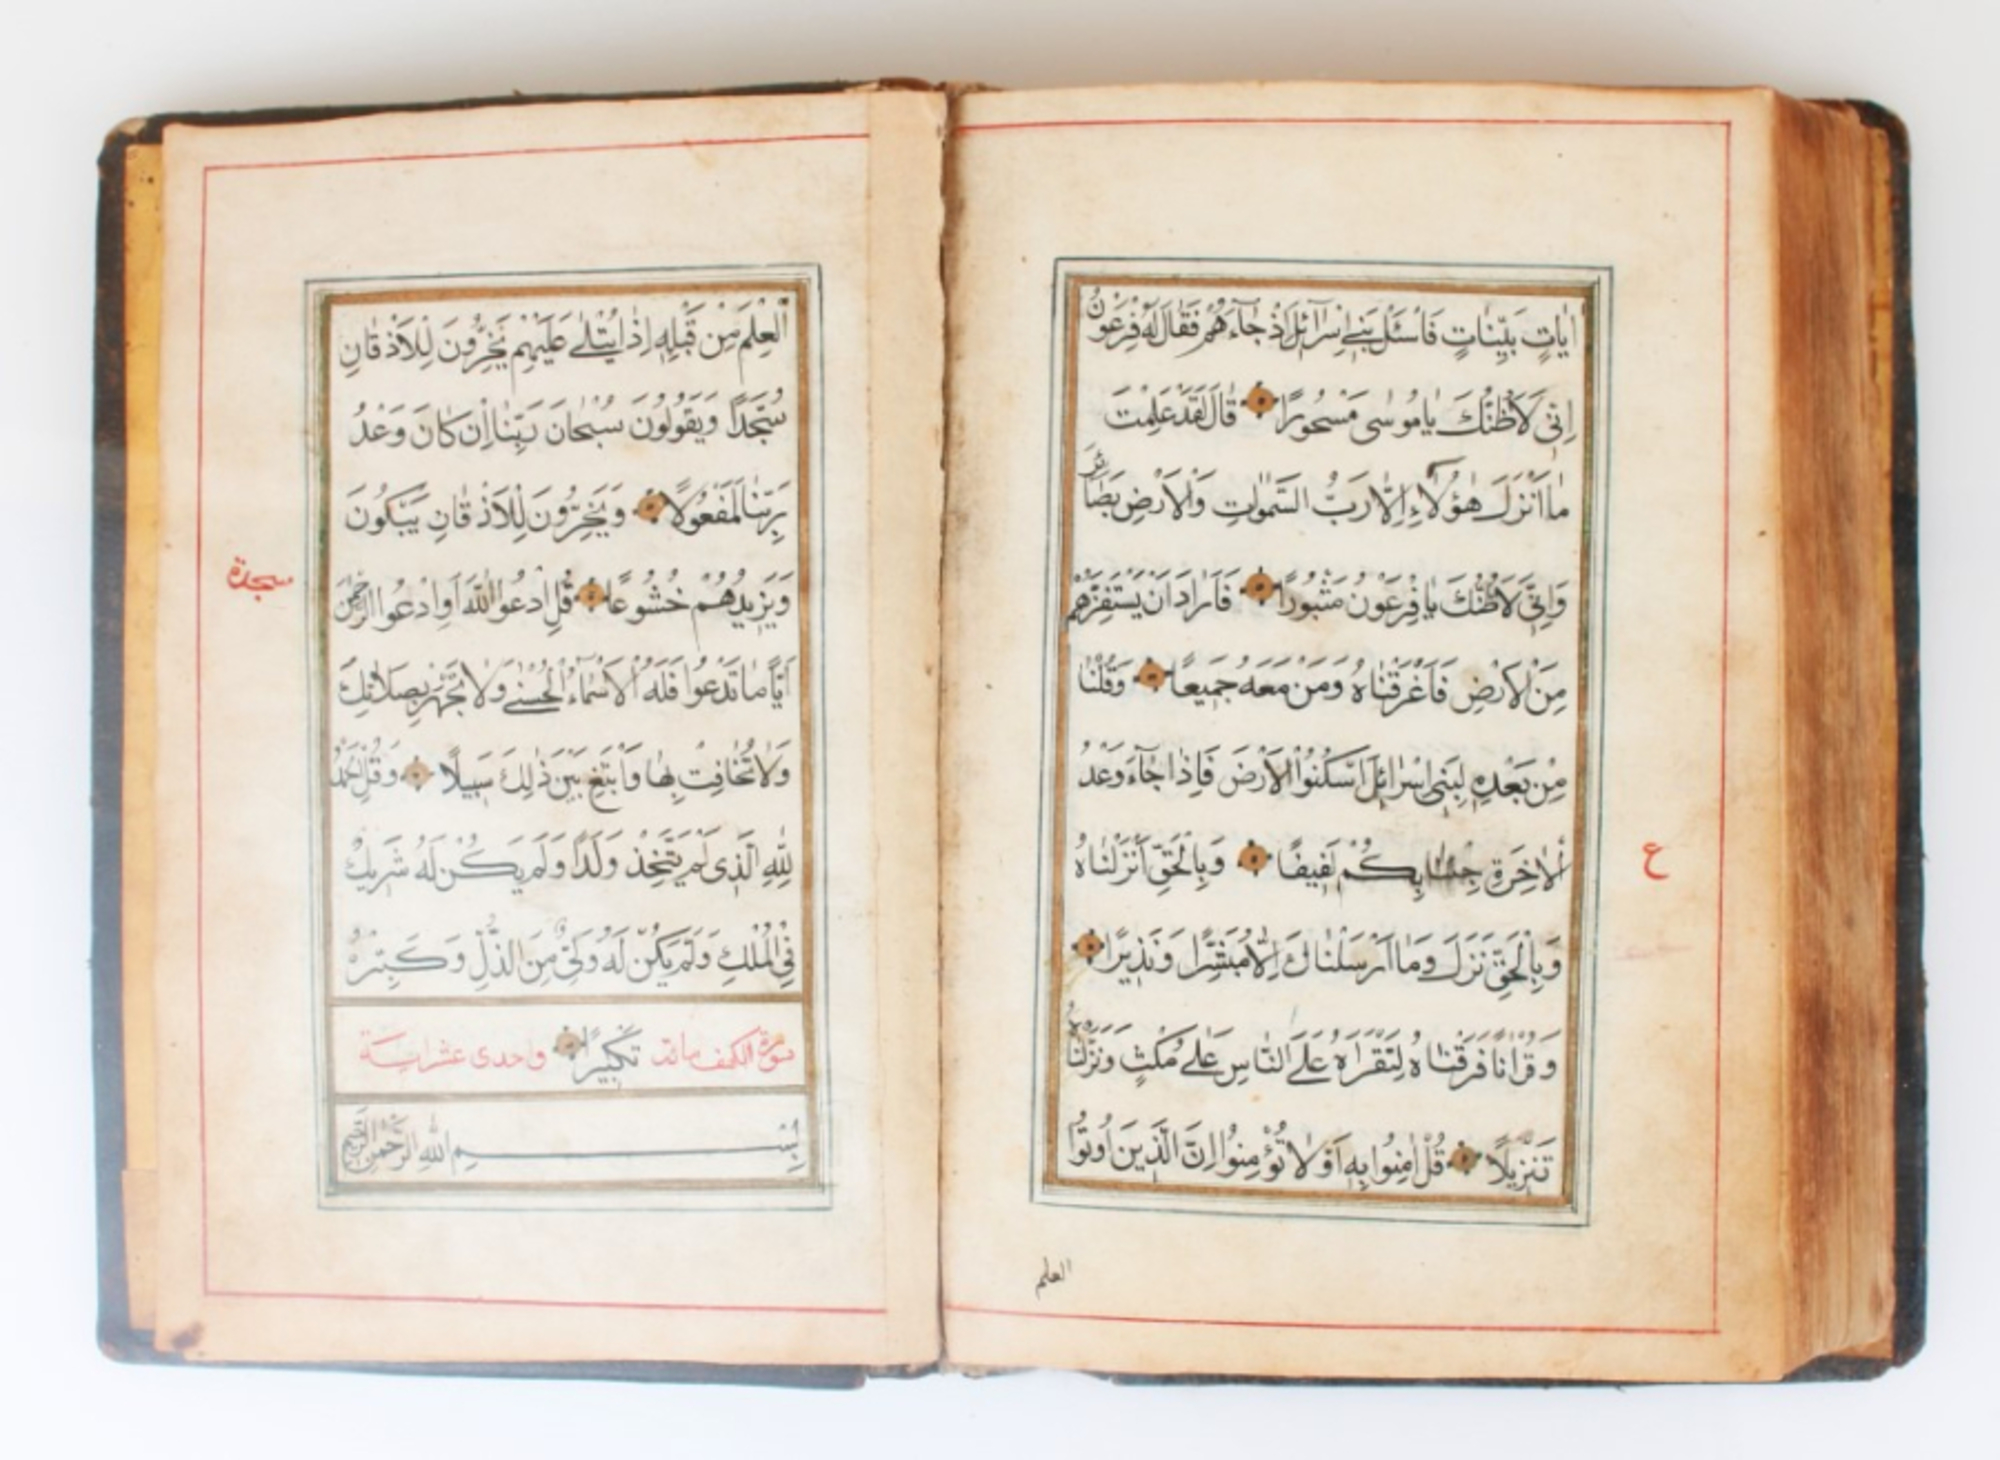 اٰيَاتٍ بَيِّنَاتٍ فَاسْئَلْ بَنِي اِسْرَآئِلَ اِذْ جَاءَهُمْ فَقَالَ لَهُ فِرْعَوْنُ
اِنِّي لَاَظُنُّكَ يَامُوسٰى مَسْحُورًا قَالَ لَقَدْ عَلِمْتَ
مَا اَنْزَلَ هٰؤُلَاءِ اِلَّا رَبُّ السَّمٰوَاتِ وَالْاَرْضِ بَصَائِرَ
وَاِنِّي لَاَظُنُّكَ يَا فِرْعَوْنُ مَثْبُورًا فَاَرَادَ اَنْ يَسْتَفِزَّهُمْ
مِنَ الْاَرْضِ فَاَغْرَقْنَاهُ وَمَنْ مَعَهُ جَمِيعًا وَقُلْنَا
مِنْ بَعْدِهِ لِبَنِي اِسْرَائِلَ اسْكُنُوا الْاَرْضَ فَاِذَا جَآءَ وَعْدُ
الْاٰخِرَةِ جِئْنَا بِكُمْ لَفِيفًا وَبِالْحَقِّ اَنْزَلْنَاهُ
ع
وَبِالْحَقِّ نَزَلَ وَمَا اَرْسَلْنَاكَ اِلَّا مُبَشِّرًا وَنَذِيرًا
وَقُرْاٰنًا فَرَقْنَاهُ لِتَقْرَاَهُ عَلَى النَّاسِ عَلٰى مُكْثٍ وَنَزَّلْنَاهُ
تَنْزِيلًا قُلْ اٰمِنُوا بِهِ اَوْ لَا تُؤْمِنُوا اِنَّ الَّذِينَ اُوتُوا
العلم
الْعِلْمَ مِنْ قَبْلِهِ اِذَا يُتْلٰى عَلَيْهِمْ يَخِرُّونَ لِلْاَذْقَانِ
سُجَّدًا وَيَقُولُونَ سُبْحَانَ رَبِّنَا اِنْ كَانَ وَعْدُ
رَبِّنَا لَمَفْعُولًا وَيَخِرُّونَ لِلْاَذْقَانِ يَبْكُونَ
سجدة
وَيَزِيدُهُمْ خُشُوعًا قُلِ ادْعُوا اللّٰهَ اَوِ ادْعُوا الرَّحْمٰنَ
اَيًّا مَا تَدْعُوا فَلَهُ الْاَسْمَاءُ الْحُسْنٰى وَلَا تَجْهَرْ بِصَلَاتِكَ
وَلَا تُخَافِتْ بِهَا وَابْتَغِ بَيْنَ ذٰلِكَ سَبِيلًا وَقُلِ الْحَمْدُ
لِلّٰهِ الَّذِي لَمْ يَتَّخِذْ وَلَدًا وَلَمْ يَكُنْ لَهُ شَرِيكٌ
فِي الْمُلْكِ وَلَمْ يَكُنْ لَهُ وَلِيٌّ مِنَ الذُّلِّ وَكَبِّرْهُ
سورة الكهف مائة تَكْبِيرًا واحدى عشر اية
بِسْمِ اللّٰهِ الرَّحْمٰنِ الرَّحِيمِ